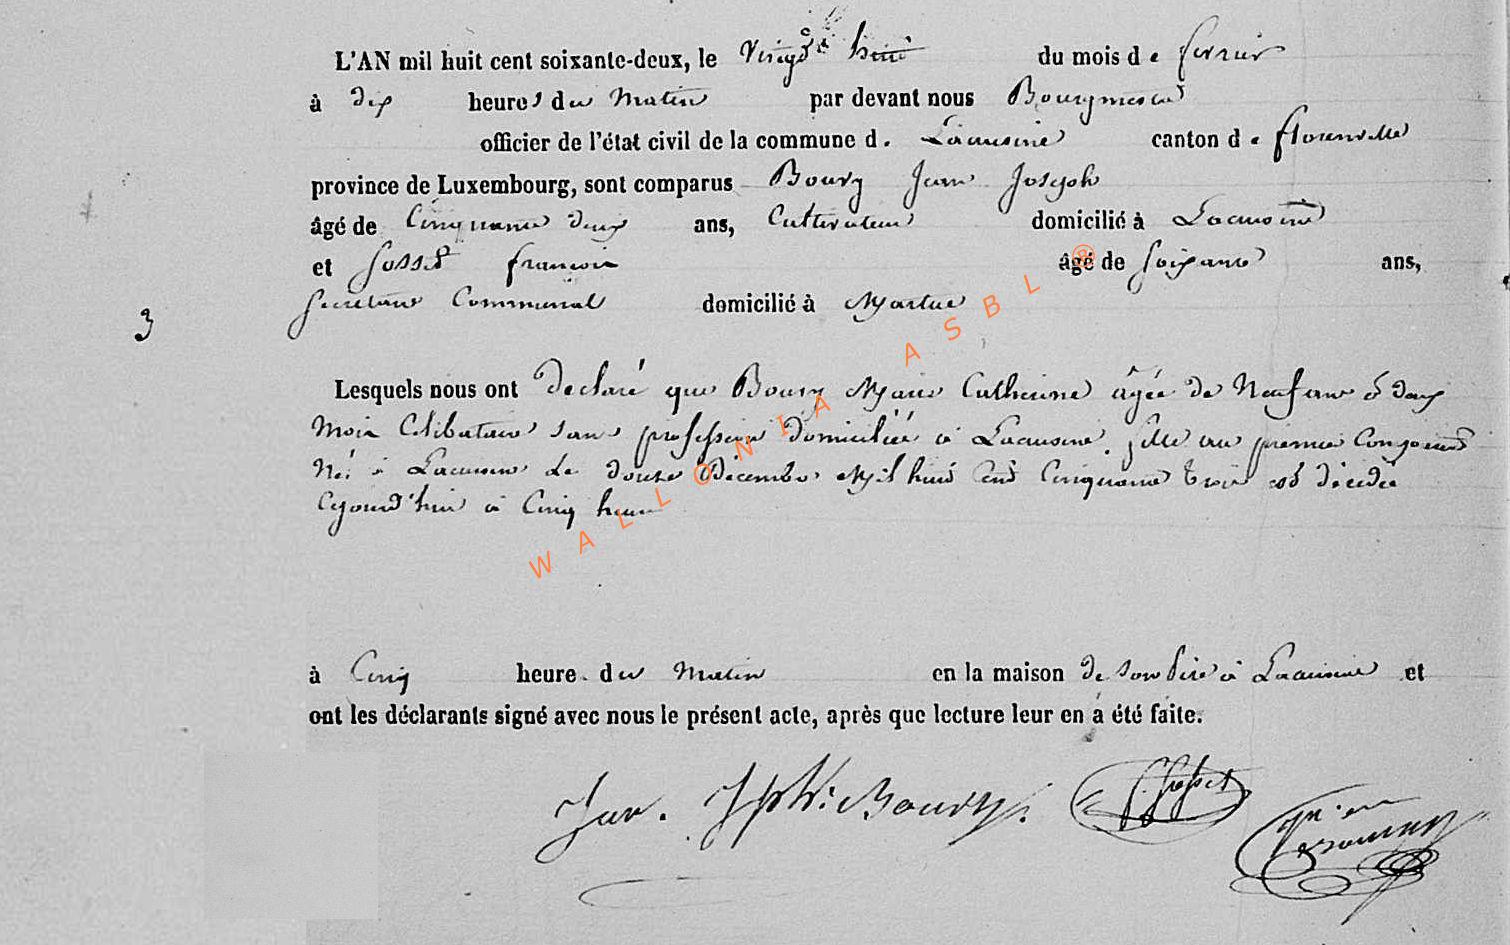 L'AN mil huit cent soixante-deux, le Vingt huit du mois de fevrier
à dix heures du Matin par devant nous Bourgmestre
officier de l'état civil de la commune d. Lacuisine canton de florenville
province de Luxembourg, sont comparus Boury Jean Joseph
âgé de Cinquante deux ans, Cultivateur domicilié à Lacuisine
et Gosset francois âgé de soixante ans,
Secretaire Communal domicilié à Martue
3
Lesquels nous ont declaré que Boury Marie Catherine âgée de Neuf ans & deux
Mois Célibataire sans profession domiciliée à Lacuisine, fille au premier Comparant
Née à Lacuisine le douze Décembre Mil huit Cent Cinquante trois est décédée
à Cinq heures
à Cinq heure. du Matin en la maison de son Père à Lacuisine et
ont les déclarants signé avec nous le présent acte, après que lecture leur en à été faite.
Jean. Jph: Boury. Gosset
WALLONIA ASBL ®